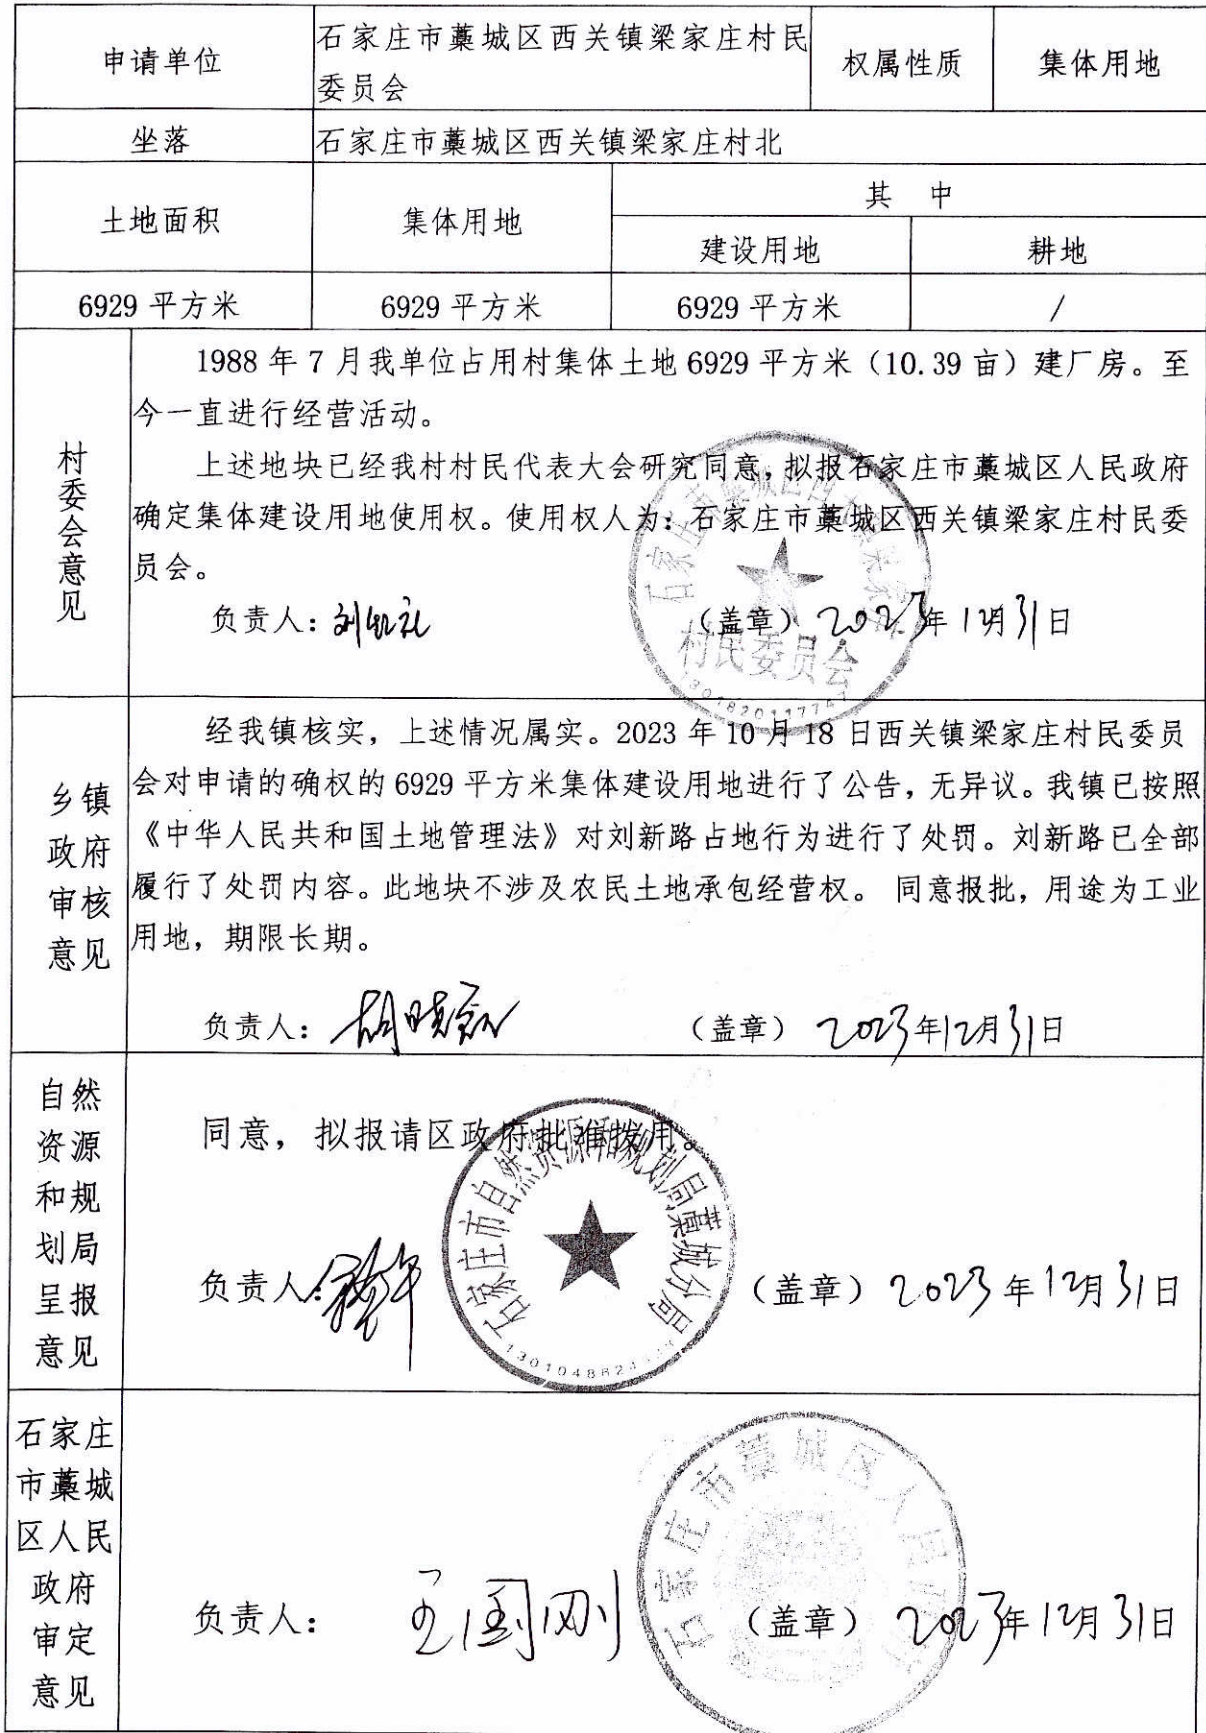 申请单位
石家庄市藁城区西关镇梁家庄村民
委员会
权属性质
集体用地
坐落
石家庄市藁城区西关镇梁家庄村北
土地面积
集体用地
其 中
建设用地
耕地
6929 平方米
6929 平方米
6929 平方米
/
村委会意见
1988 年 7 月我单位占用村集体土地 6929 平方米（10.39 亩）建厂房。至
今一直进行经营活动。
上述地块已经我村村民代表大会研究同意，拟报石家庄市藁城区人民政府
确定集体建设用地使用权。使用权人为：石家庄市藁城区西关镇梁家庄村民委
员会。
负责人：
（盖章） 2023年12月31日
村民委员会
乡镇
政府
审核
意见
经我镇核实，上述情况属实。2023 年 10 月 18 日西关镇梁家庄村民委员
会对申请的确权的 6929 平方米集体建设用地进行了公告，无异议。我镇已按照
《中华人民共和国土地管理法》对刘新路占地行为进行了处罚。刘新路已全部
履行了处罚内容。此地块不涉及农民土地承包经营权。 同意报批，用途为工业
用地，期限长期。
负责人：
（盖章） 2023年12月31日
自然
资源
和规
划局
呈报
意见
同意，拟报请区政府批准拨用。
石家庄市自然资源和规划局藁城分局
负责人：
（盖章） 2023年12月31日
石家庄
市藁城
区人民
政府
审定
意见
石家庄市藁城区人民政府
负责人： 王国刚
（盖章） 2023年12月31日